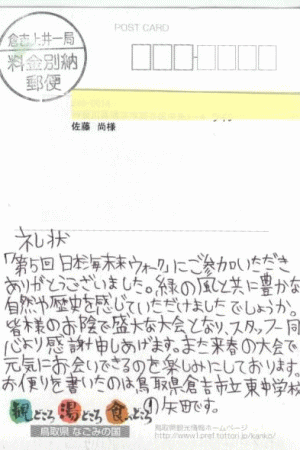 POST CARD
倉吉上井一局
料金別納
郵便
佐藤 尚様
礼状
「第5回 日本海未来ウォーク」にご参加いただき
ありがとうございました。緑の風と共に豊かな
自然や歴史を感じていただけましたでしょうか。
皆様のお陰で盛大な大会となり、スタッフ一同
心より感謝申しあげます。また来春の大会で
元気にお会いできるのを楽しみにしております。
お便りを書いたのは鳥取県倉吉市立東中学校
観どころ 湯どころ 食どころ 矢田です。
鳥取県 なごみの国
鳥取県観光情報ホームページ
http://www1.pref.tottori.jp/kanko/